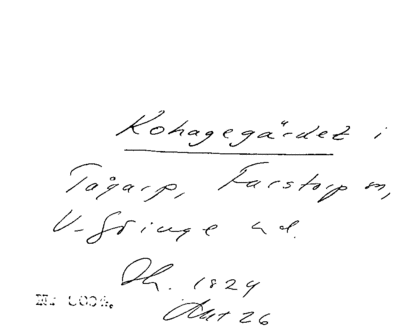 Kohagegärdet i
Tågarp, Farstorp sn,
V. Göinge hd.
Dh. 1829
Akt 26